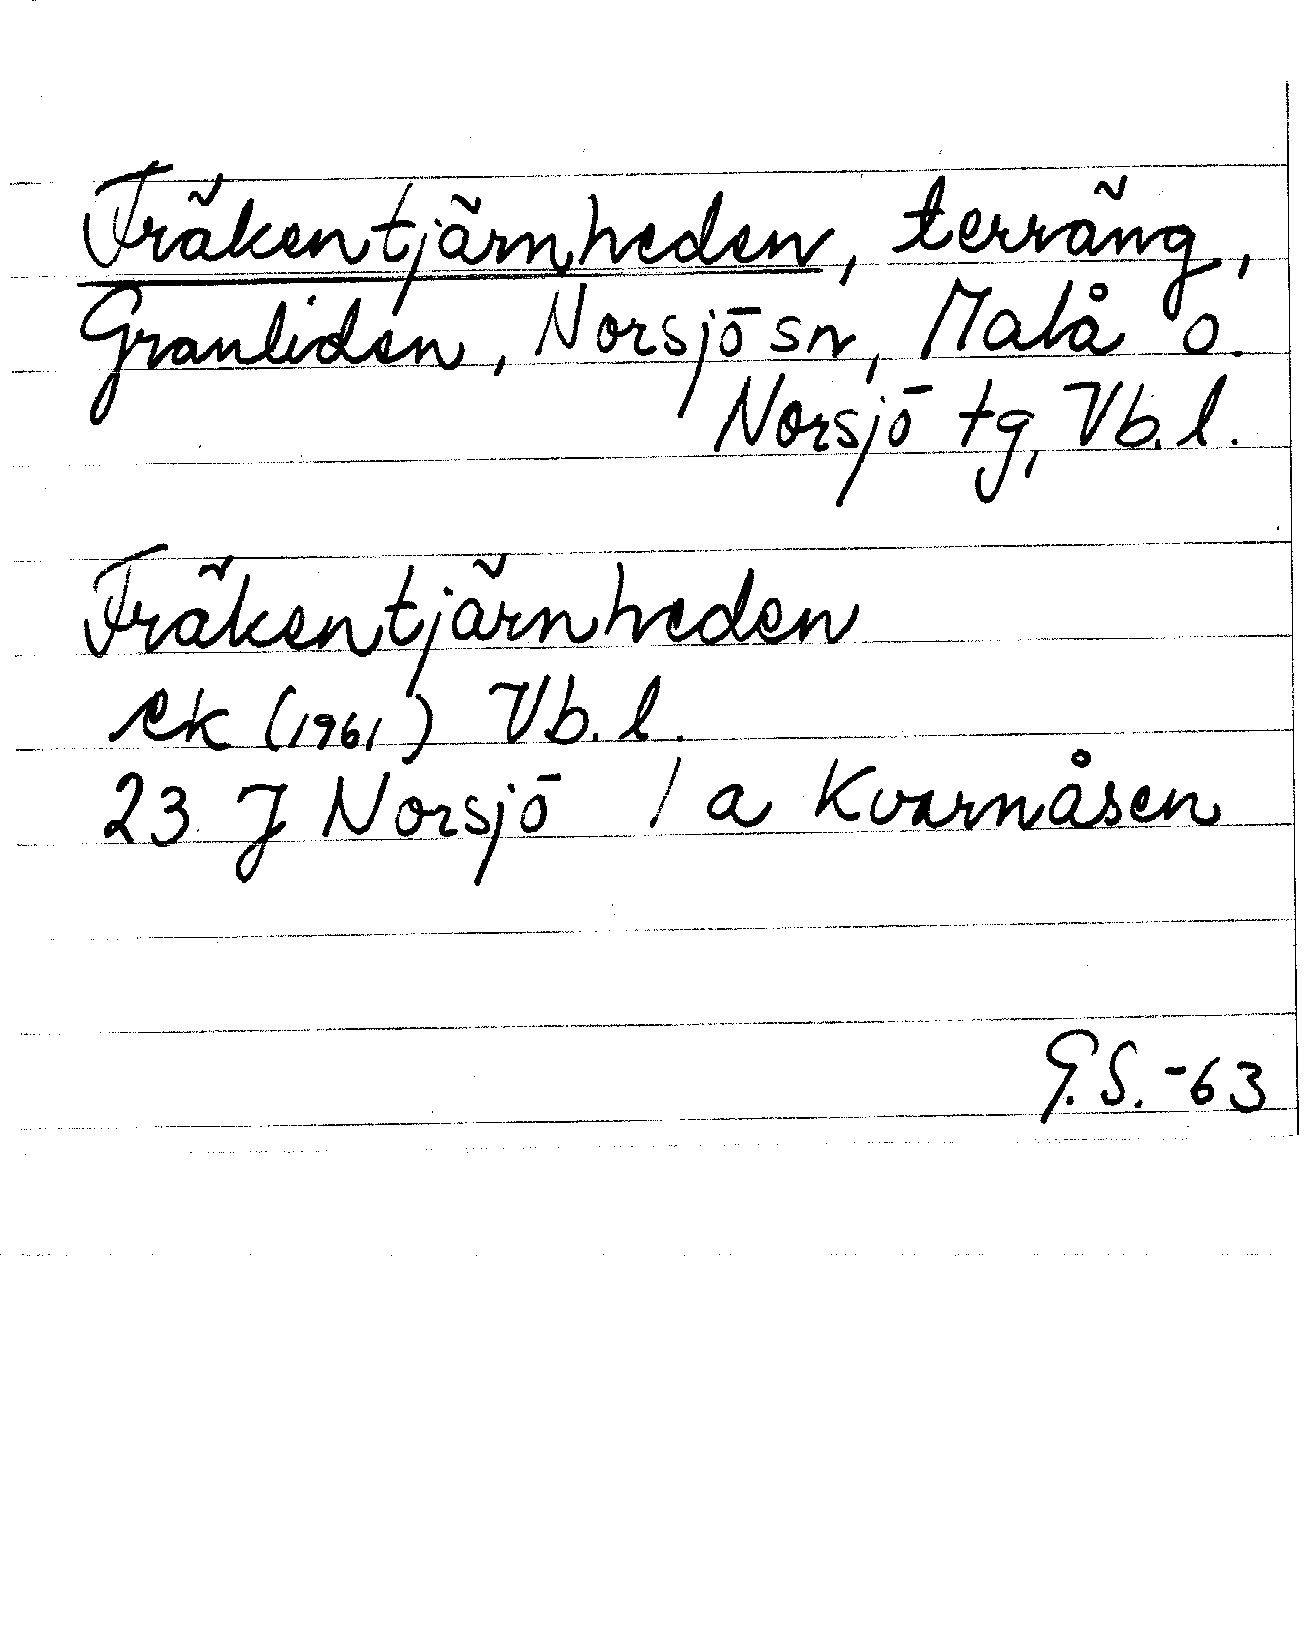 Fräkentjärnheden, terräng,
Granliden, Norsjö sn, Malå o.
Norsjö tg, Vb. l.
Fräkentjärnheden
ek (1961) Vb. l.
23 J Norsjö 1 a Kvarnåsen
G.S. -63